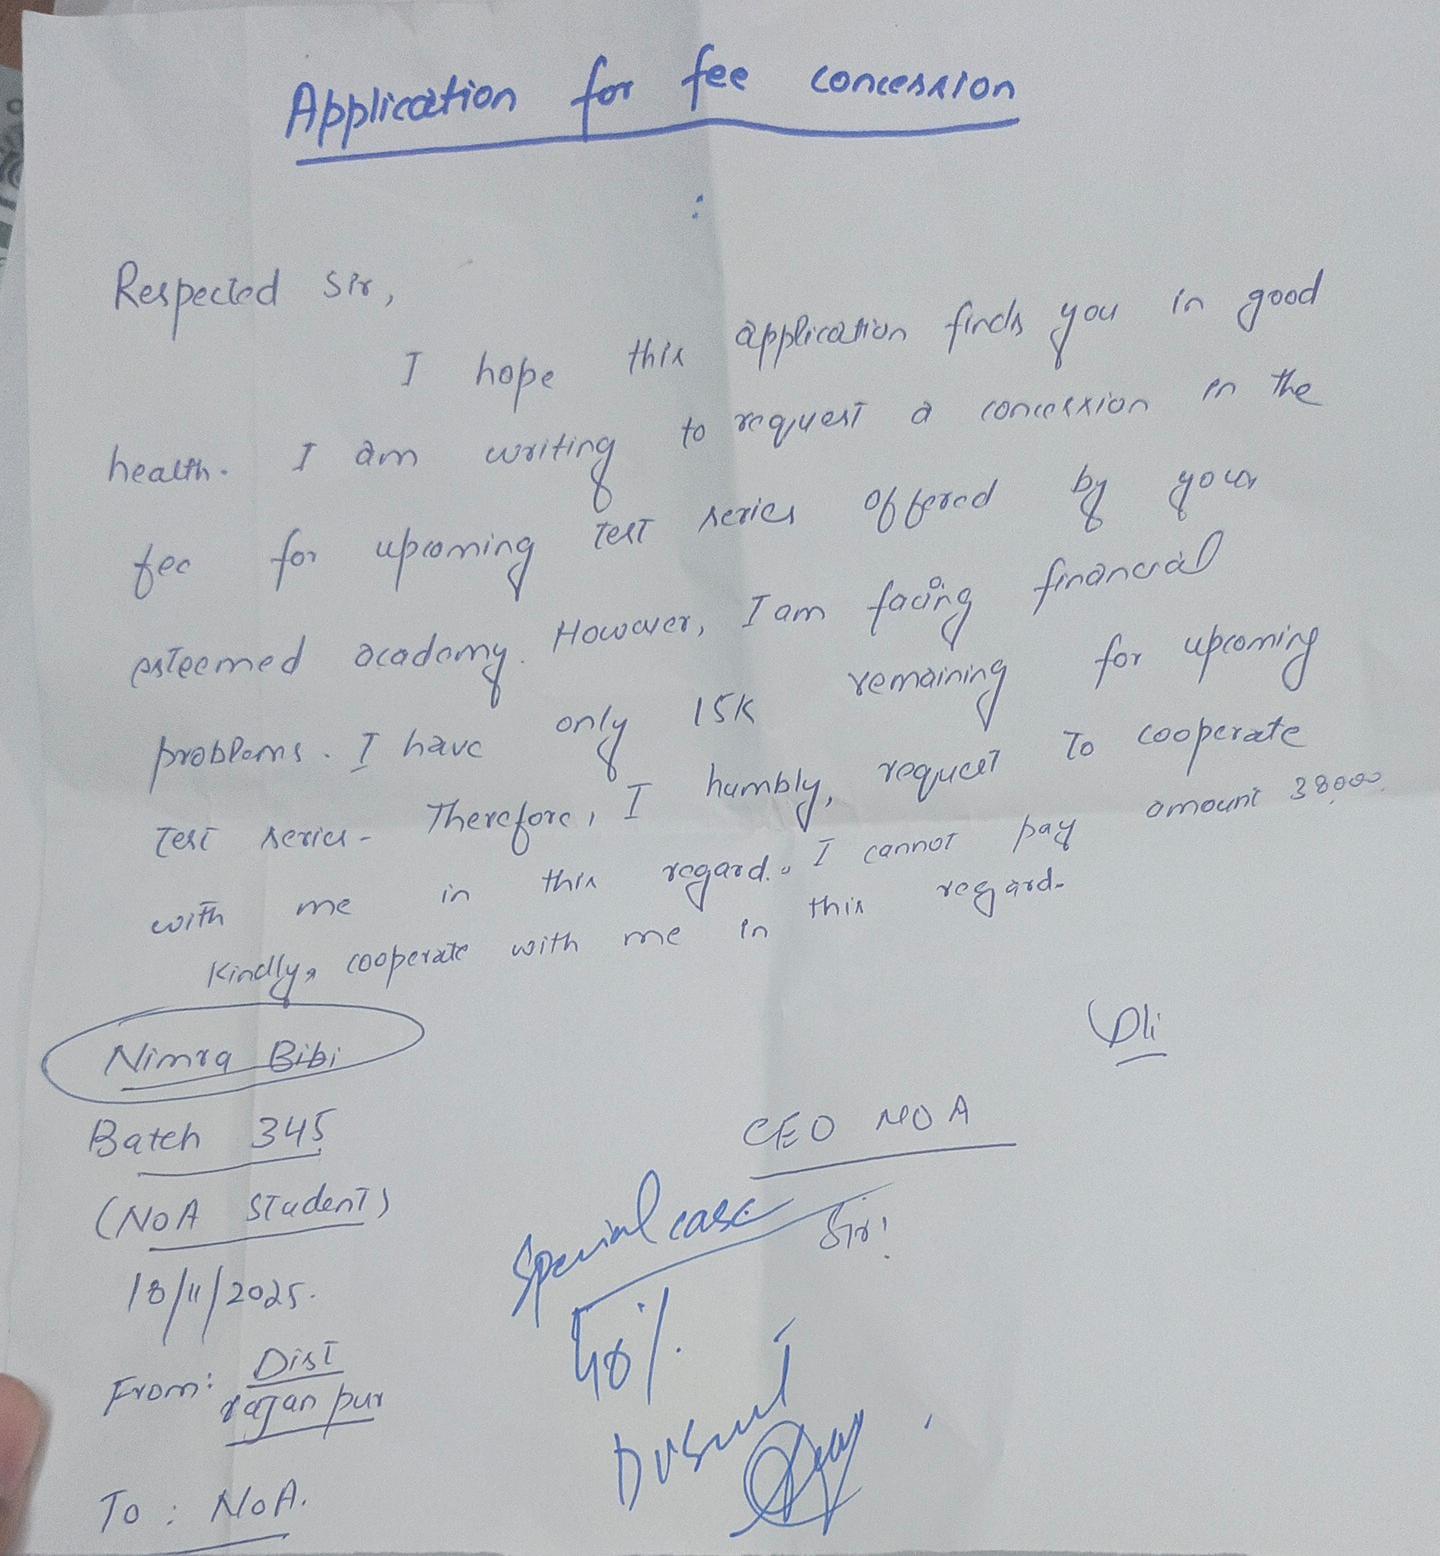 Application for fee concession
:
Respected Sir,
I hope this application finds you in good
health. I am writing to request a concession in the
fee for upcoming test series offered by your
esteemed academy. However, I am facing financial
problems. I have only 15k remaining for upcoming
test series. Therefore, I humbly, request to cooperate
with me in this regard. I cannot pay amount 38000.
Kindly, cooperate with me in this regard.
Nimra Bibi
Batch 345
(NOA Student)
18/11/2025.
From: Dist
rajan pur
To : NOA.
CEO NOA
Sir!
Special case
40%